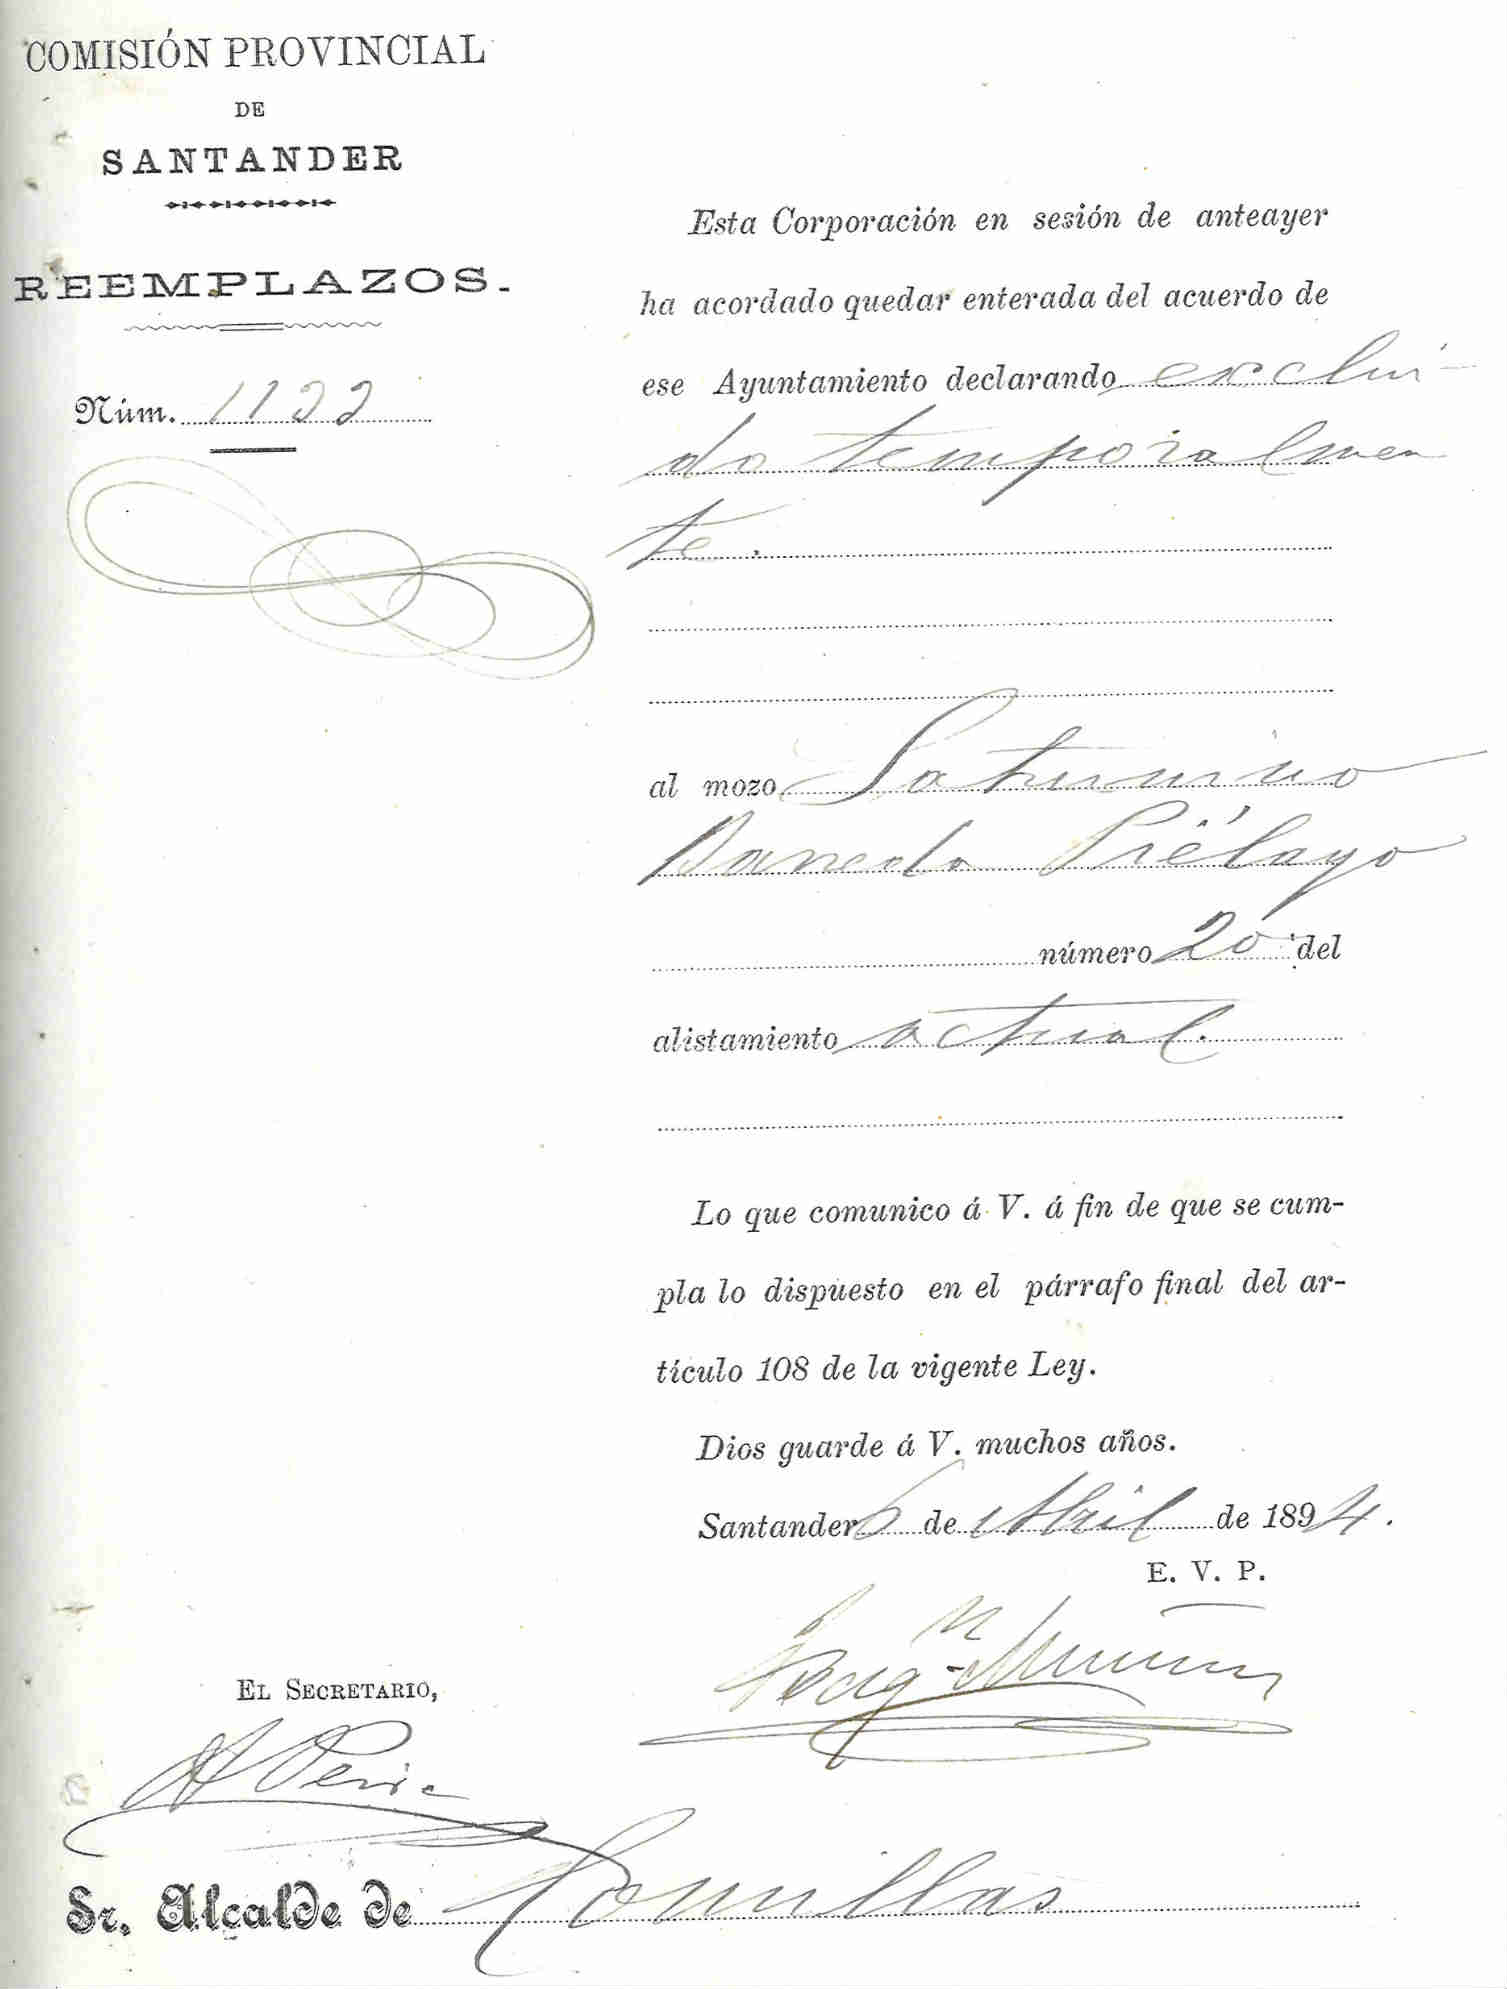 COMISIÓN PROVINCIAL
DE
SANTANDER
REEMPLAZOS.
Núm. 1122
Esta Corporación en sesión de anteayer
ha acordado quedar enterada del acuerdo de
ese Ayuntamiento declarando exclui-
do temporalmen
te.
al mozo Saturnino
Piélago
número 20 del
alistamiento actual.
Lo que comunico á V. á fin de que se cum-
pla lo dispuesto en el párrafo final del ar-
tículo 108 de la vigente Ley.
Dios guarde á V. muchos años.
Santander 6 de Abril de 1894.
E. V. P.
EL SECRETARIO,
Sr. Alcalde de Comillas